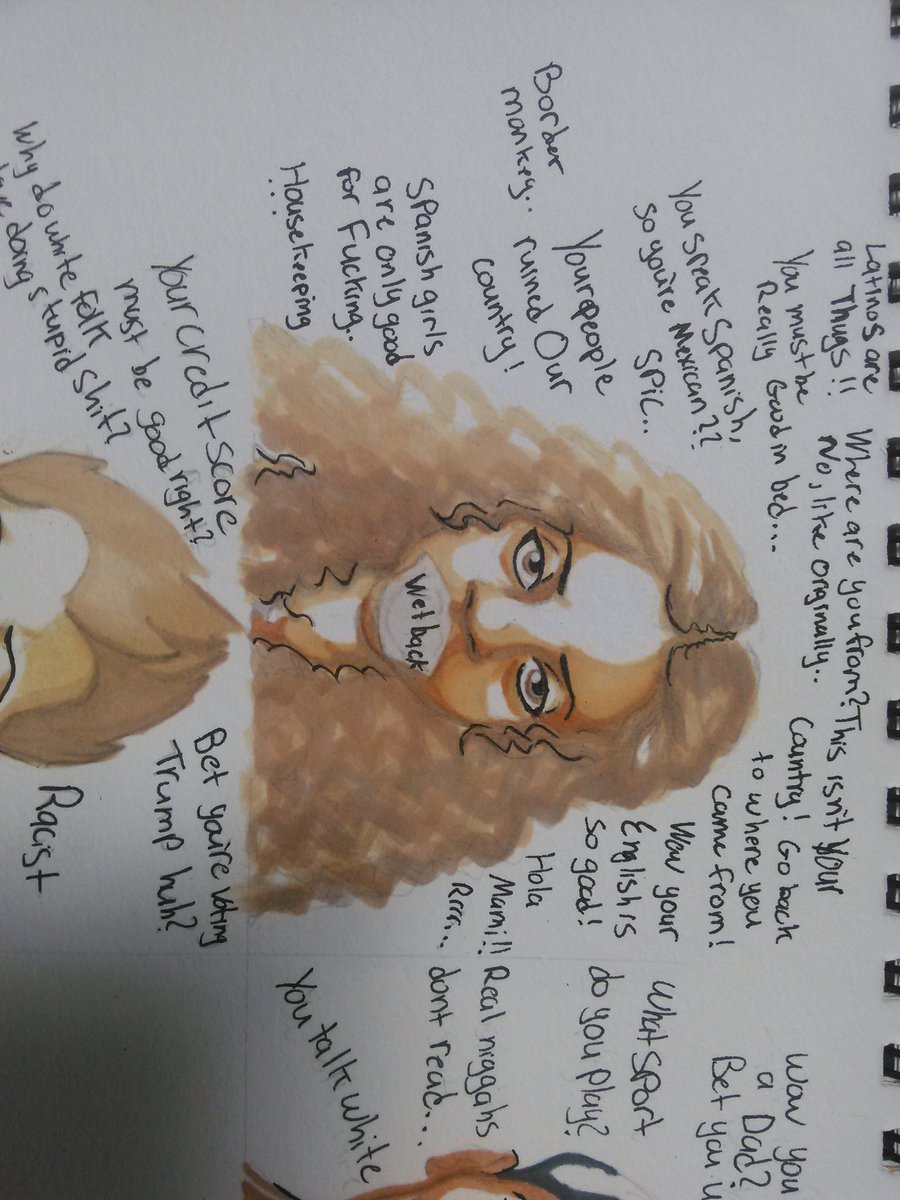 Latinos are
all Thugs!!
Where are you from?
No, like originally..
This isn't Your
Country! Go back
to where you
came from!
You must be
Really Good in bed...
You speak Spanish,
so you're Mexican??
Spic..
Wow your
English is
so good!
Your people
ruined Our
country!
Border
monkey..
Hola
Mami!!
Rrrr...
Spanish girls
are only good
for Fucking.
Housekeeping
Wetback
Wow you
a Dad?
Bet you
What sport
do you play?
Real niggahs
dont read...
You talk white
Your credit score
must be good right?
Why do white folk
doing stupid shit?
Bet you're voting
Trump huh?
Racist